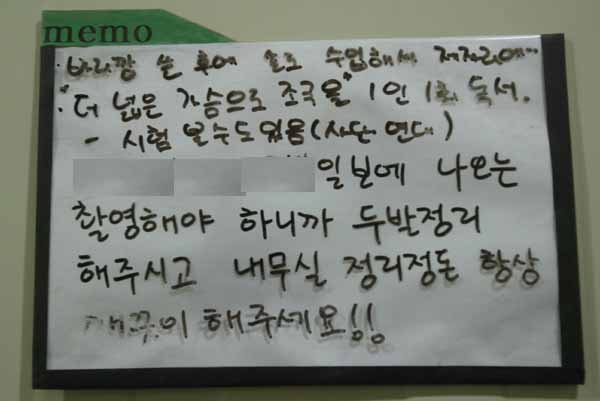 memo
· 바리깡 쓴 후에 솔로 수입해서 제자리에…
· "더 넓은 가슴으로 조국을" 1인 1회 독서.
- 시험 볼수도있음(사단 연대)
일보에 나오는
촬영해야 하니까 두발정리
해주시고 내무실 정리정돈 항상
해주세요!!